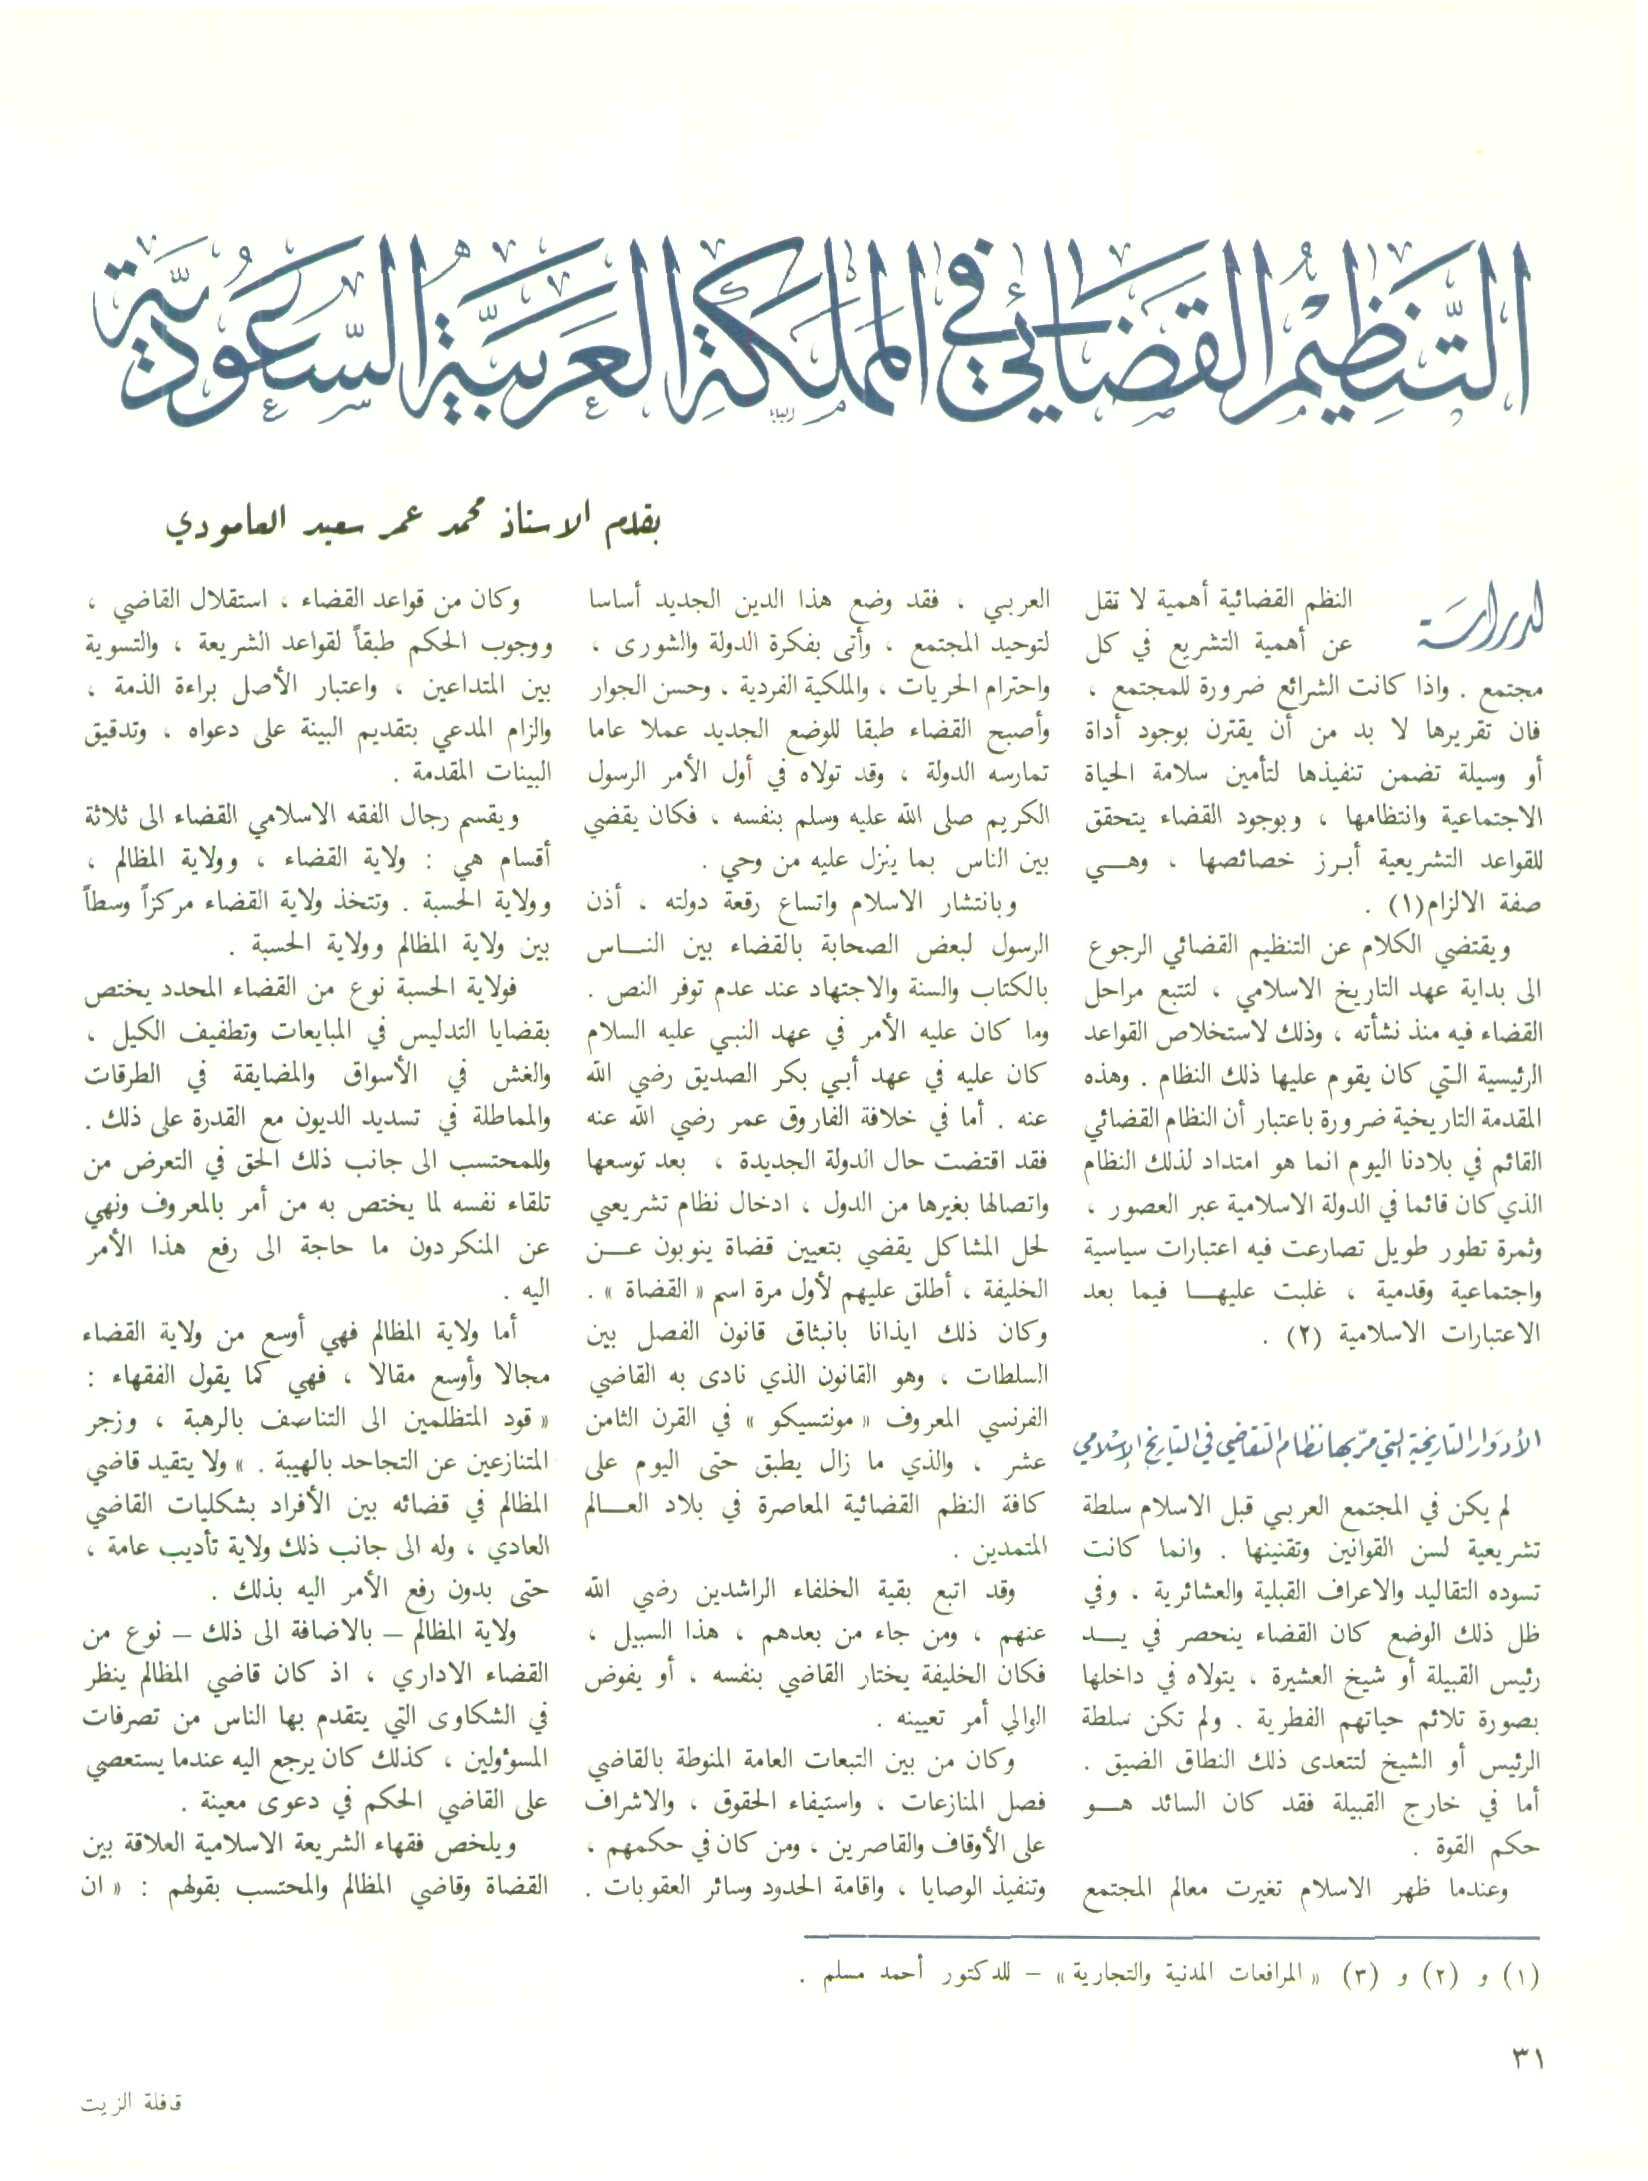 التنظيم القضائي في المملكة العربية السعودية
بقلم الاستاذ محمد عمر سعيد العامودي
لدراسة النظم القضائية أهمية لا تقل
عن أهمية التشريع في كل
مجتمع . واذا كانت الشرائع ضرورة للمجتمع ،
فان تقريرها لا بد من أن يقترن بوجود أداة
أو وسيلة تضمن تنفيذها لتأمين سلامة الحياة
الاجتماعية وانتظامها ، وبوجود القضاء يتحقق
للقواعد التشريعية أبرز خصائصها ، وهي
صفة الالزام(١) .
ويقتضي الكلام عن التنظيم القضائي الرجوع
الى بداية عهد التاريخ الاسلامي ، لنتبع مراحل
القضاء فيه منذ نشأته ، وذلك لاستخلاص القواعد
الرئيسية التي كان يقوم عليها ذلك النظام . وهذه
المقدمة التاريخية ضرورة باعتبار أن النظام القضائي
القائم في بلادنا اليوم انما هو امتداد لذلك النظام
الذي كان قائما في الدولة الاسلامية عبر العصور ،
وثمرة تطور طويل تصارعت فيه اعتبارات سياسية
واجتماعية وقدمية ، غلبت عليها فيما بعد
الاعتبارات الاسلامية (٢) .
الأدوار التاريخية التي مرّ بها نظام التقاضي في التاريخ الإسلامي
لم يكن في المجتمع العربي قبل الاسلام سلطة
تشريعية لسن القوانين وتقنينها . وانما كانت
تسوده التقاليد والاعراف القبلية والعشائرية . وفي
ظل ذلك الوضع كان القضاء ينحصر في يد
رئيس القبيلة أو شيخ العشيرة ، يتولاه في داخلها
بصورة تلائم حياتهم الفطرية . ولم تكن سلطة
الرئيس أو الشيخ لتتعدى ذلك النطاق الضيق .
أما في خارج القبيلة فقد كان السائد هو
حكم القوة .
وعندما ظهر الاسلام تغيرت معالم المجتمع
العربي ، فقد وضع هذا الدين الجديد أساسا
لتوحيد المجتمع ، وأتى بفكرة الدولة والشورى ،
واحترام الحريات ، والملكية الفردية ، وحسن الجوار
وأصبح القضاء طبقا للوضع الجديد عملا عاما
تمارسه الدولة ، وقد تولاه في أول الأمر الرسول
الكريم صلى الله عليه وسلم بنفسه ، فكان يقضي
بين الناس بما ينزل عليه من وحي .
وبانتشار الاسلام واتساع رقعة دولته ، أذن
الرسول لبعض الصحابة بالقضاء بين الناس
بالكتاب والسنة والاجتهاد عند عدم توفر النص .
وما كان عليه الأمر في عهد النبي عليه السلام
كان عليه في عهد أبي بكر الصديق رضي الله
عنه . أما في خلافة الفاروق عمر رضي الله عنه
فقد اقتضت حال الدولة الجديدة ، بعد توسعها
واتصالها بغيرها من الدول ، ادخال نظام تشريعي
لحل المشاكل يقضي بتعيين قضاة ينوبون عن
الخليفة ، أطلق عليهم لأول مرة اسم « القضاة » .
وكان ذلك ايذانا بانبثاق قانون الفصل بين
السلطات ، وهو القانون الذي نادى به القاضي
الفرنسي المعروف « مونتسيكو » في القرن الثامن
عشر ، والذي ما زال يطبق حتى اليوم على
كافة النظم القضائية المعاصرة في بلاد العالم
المتمدين .
وقد اتبع بقية الخلفاء الراشدين رضي الله
عنهم ، ومن جاء من بعدهم ، هذا السبيل ،
فكان الخليفة يختار القاضي بنفسه ، أو يفوض
الوالي أمر تعيينه .
وكان من بين التبعات العامة المنوطة بالقاضي
فصل المنازعات ، واستيفاء الحقوق ، والاشراف
على الأوقاف والقاصرين ، ومن كان في حكمهم ،
وتنفيذ الوصايا ، واقامة الحدود وسائر العقوبات .
وكان من قواعد القضاء ، استقلال القاضي ،
ووجوب الحكم طبقاً لقواعد الشريعة ، والتسوية
بين المتداعين ، واعتبار الأصل براءة الذمة ،
والزام المدعي بتقديم البينة على دعواه ، وتدقيق
البينات المقدمة .
ويقسم رجال الفقه الاسلامي القضاء الى ثلاثة
أقسام هي : ولاية القضاء ، وولاية المظالم ،
وولاية الحسبة . وتتخذ ولاية القضاء مركزاً وسطاً
بين ولاية المظالم وولاية الحسبة .
فولاية الحسبة نوع من القضاء المحدد يختص
بقضايا التدليس في المبايعات وتطفيف الكيل ،
والغش في الأسواق والمضايقة في الطرقات
والمماطلة في تسديد الديون مع القدرة على ذلك .
وللمحتسب الى جانب ذلك الحق في التعرض من
تلقاء نفسه لما يختص به من أمر بالمعروف ونهي
عن المنكر دون ما حاجة الى رفع هذا الأمر
اليه .
أما ولاية المظالم فهي أوسع من ولاية القضاء
مجالا وأوسع مقالا ، فهي كما يقول الفقهاء :
« قود المتظلمين الى التناصف بالرهبة ، وزجر
المتنازعين عن التجاحد بالهيبة . » ولا يتقيد قاضي
المظالم في قضائه بين الأفراد بشكليات القاضي
العادي ، وله الى جانب ذلك ولاية تأديب عامة ،
حتى بدون رفع الأمر اليه بذلك .
ولاية المظالم – بالاضافة الى ذلك – نوع من
القضاء الاداري ، اذ كان قاضي المظالم ينظر
في الشكاوى التي يتقدم بها الناس من تصرفات
المسؤولين ، كذلك كان يرجع اليه عندما يستعصي
على القاضي الحكم في دعوى معينة .
ويلخص فقهاء الشريعة الاسلامية العلاقة بين
القضاة وقاضي المظالم والمحتسب بقولهم : « ان
(١) و (٢) و (٣) « المرافعات المدنية والتجارية » – للدكتور أحمد مسلم .
٣١
قافلة الزيت